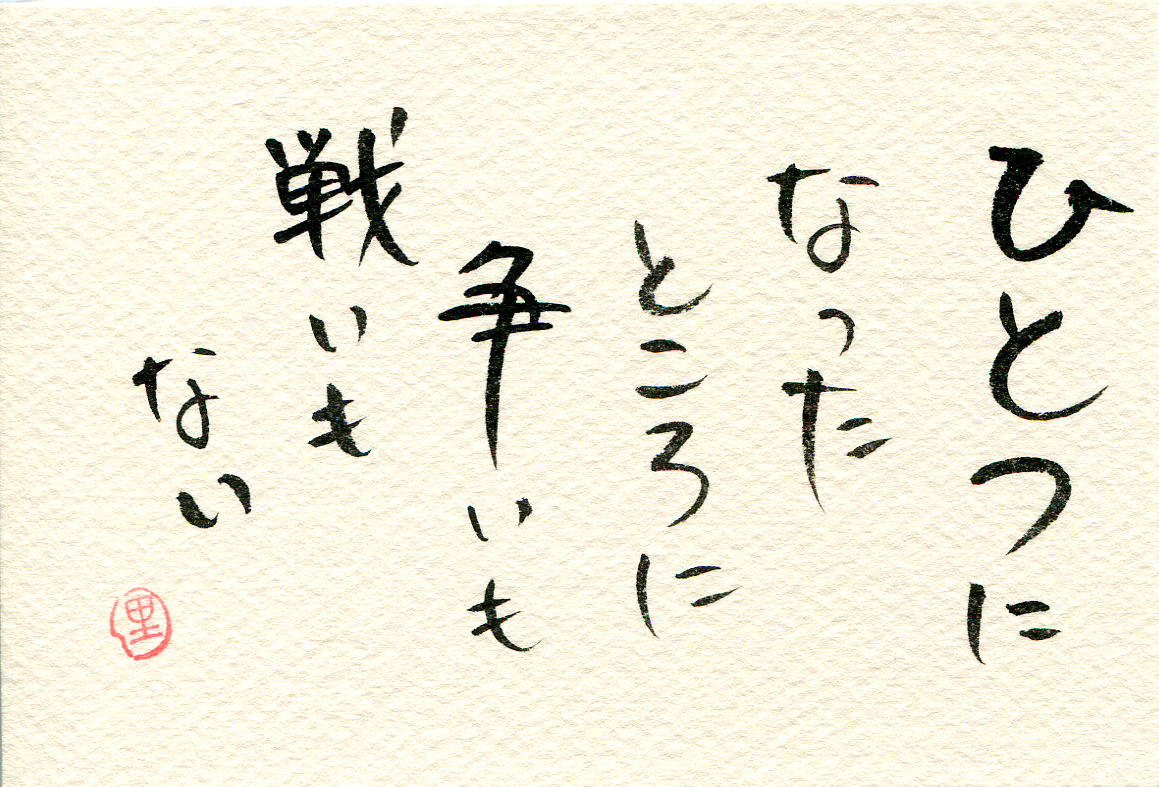 ひとつに
なった
ところに
争いも
戦いも
ない
里